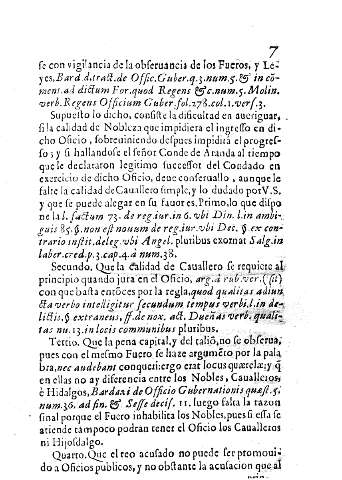 7
se con vigilancia de la obseruancia de los Fueros, y Le-
yes, Bard. d. tract. de Offic. Guber. q. 3. num. 5. & in cō-
ment. ad dictum For. quod Regens & c. num. 5. Molin.
verb. Regens Officium Guber. fol. 278. col. 1. vers. 3.
Supuesto lo dicho, consiste la dificultad en aueriguar,
si la calidad de Nobleza que impidiera el ingresso en di-
cho Oficio, sobreuiniendo despues impidirà el progres-
so; y si hallandose el señor Conde de Aranda al tiempo
que le declararon legitimo successor del Condado en
exercicio de dicho Oficio, deue conseruallo, aunque le
falte la calidad de Cauallero simple, y lo dudado por V.S.
y que se puede alegar en su fauor es. Primo, lo que dispo-
ne la l. factum 73. de reg. iur. in 6. vbi Din. l. in ambi-
guis 85. §. non est nouum de reg. iur. vbi Dec. §. ex con-
trario instit. deleg. vbi Angel. pluribus exornat Salg. in
laber. cred. p. 3. cap. 4. à num. 38.
Secundo. Que la calidad de Cauallero se requiere al
principio quando jura en el Oficio, arg. à rub. ver. (sit)
con que basta entōces por la regla, quod qualitas adiun
cta verbo intelligitur secundum tempus verbi. l. in de-
lictis. §. extraneus, ff. de nox. act. Dueñas verb. quali-
tas nu. 13. in locis communibus pluribus.
Tertio. Que la pena capital, y del taliō, no se obserua,
pues con el mesmo Fuero se haze argumēto por la pala
bra, nec audebant conqueri: ergo erat locus quærelæ; y q̄
en ellas no ay diferencia entre los Nobles, Caualleros,
è Hidalgos, Bardaxi de Officio Gubernationis quæst. 5.
num. 36. ad fin. & Sesse decis. 11. luego falta la razon
final porque el Fuero inhabilita los Nobles, pues si essa se
atiende tampoco podràn tener el Oficio los Caualleros
ni Hijosdalgo.
Quarto. Que el reo acusado no puede ser promoui-
do a Oficios publicos, y no obstante la acusacion que al